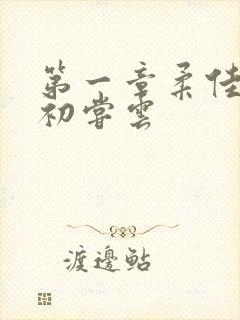 第一章柔佳
初尝雲
渡邊鮎